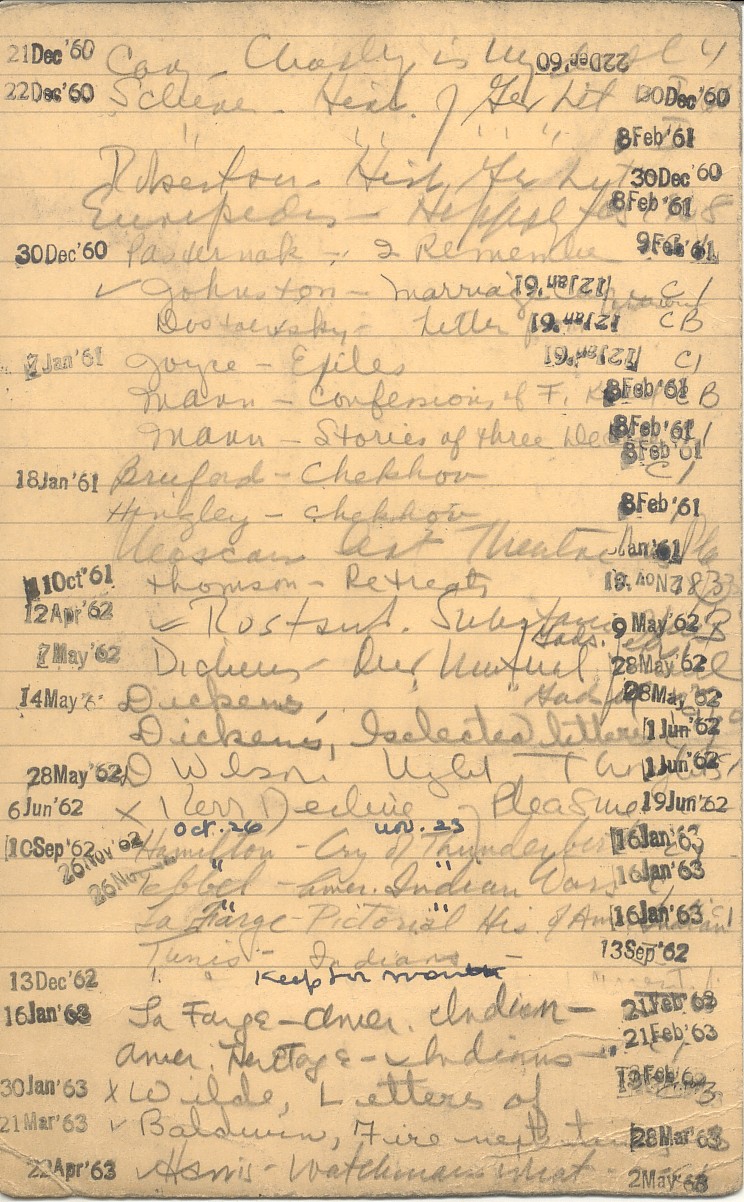 21 Dec '60 Cary - Charley is My 22 Dec '60
22 Dec '60 Scherer - Hist. of Ger Lit 30 Dec '60
" " " " 8 Feb '61
Robertson - Hist. Ger Lit 30 Dec '60
Euripedes - 8 Feb '61
30 Dec '60 Pasternak - I Remember 9 Feb '61
✓ Johnston - Marriage 12 Jan '61 C1
Dostoevsky - Letter 12 Jan '61 CB
7 Jan '61 Joyce - Exiles 12 Jan '61 C1
Mann - Confessions of F. K 8 Feb '61 CB
Mann - Stories of three Dec 8 Feb '61 1
8 Feb '61
18 Jan '61 Bruford - Chekhov C1
Hingley - Chekhov 8 Feb '61
Moscow Art Theatre Jan '61
10 Oct '61 Thomson - Retreats
12 Apr '62 ✓ Rostand. Substance 9 May '62
7 May '62 Dickens - Our Mutual 28 May '62
14 May Dickens, 28 May '62
Dickens, Selected letters 1 Jun '62
28 May '62 Wilson Light Thoughts 1 Jun '62
6 Jun '62 X Kerr Decline of Pleasure 19 Jun '62
Oct. 26 Nov. 23
10 Sep '62 26 Nov '62 Hamilton - Cry of Thunderbird 16 Jan '63
26 Nov Tebbel - Amer. Indian Wars " 16 Jan '63
La Farge - Pictorial His. of Am. Indian " 16 Jan '63 C1
Tunis - Indians - 13 Sep '62
13 Dec '62 Keep for month
16 Jan '63 La Farge - Amer. Indian - 21 Feb '63
Amer. Heritage - Indians - 21 Feb '63
30 Jan '63 X Wilde, Letters of 13 Feb '63
21 Mar '63 ✓ Baldwin, Fire next time 28 Mar '63
22 Apr '63 Harris - Watchman what - 2 May '63